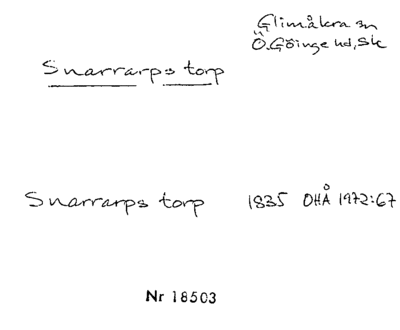 Glimåkra sn
Ö.Göinge hd, Sk
Snarrarps torp
Snarrarps torp 1835 OHÅ 1972:67
Nr 18503